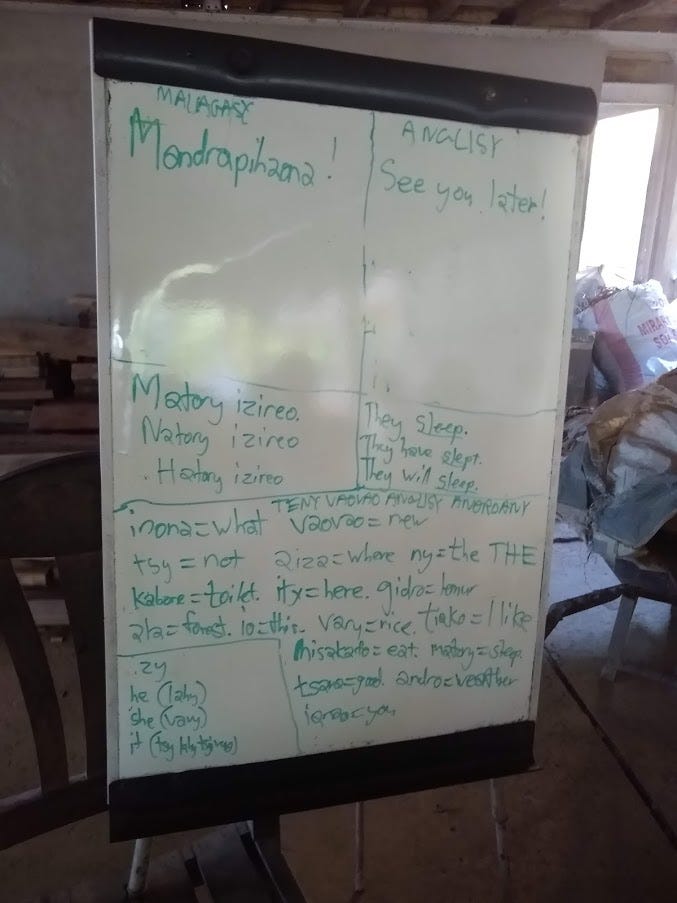 MALAGASY
Mandrapihaona!
ANGLISY
See you later!
Matory izireo.
Natory izireo
Hatory izireo
They sleep.
They have slept.
They will sleep.
TENY VAOVAO ANGLISY ANDROANY
inona=what vaovao=new
tsy=not aiza=where ny=the THE
kabone=toilet. ity=here. gidro=lemur
ala=forest. io=this. vary=rice. tiako=I like
misakafo=eat. matory=sleep.
tsara=good. andro=weather
ianao=you
zy
he (lahy)
she (vavy)
it (tsy lahy tsy vavy)
MIRA
SO